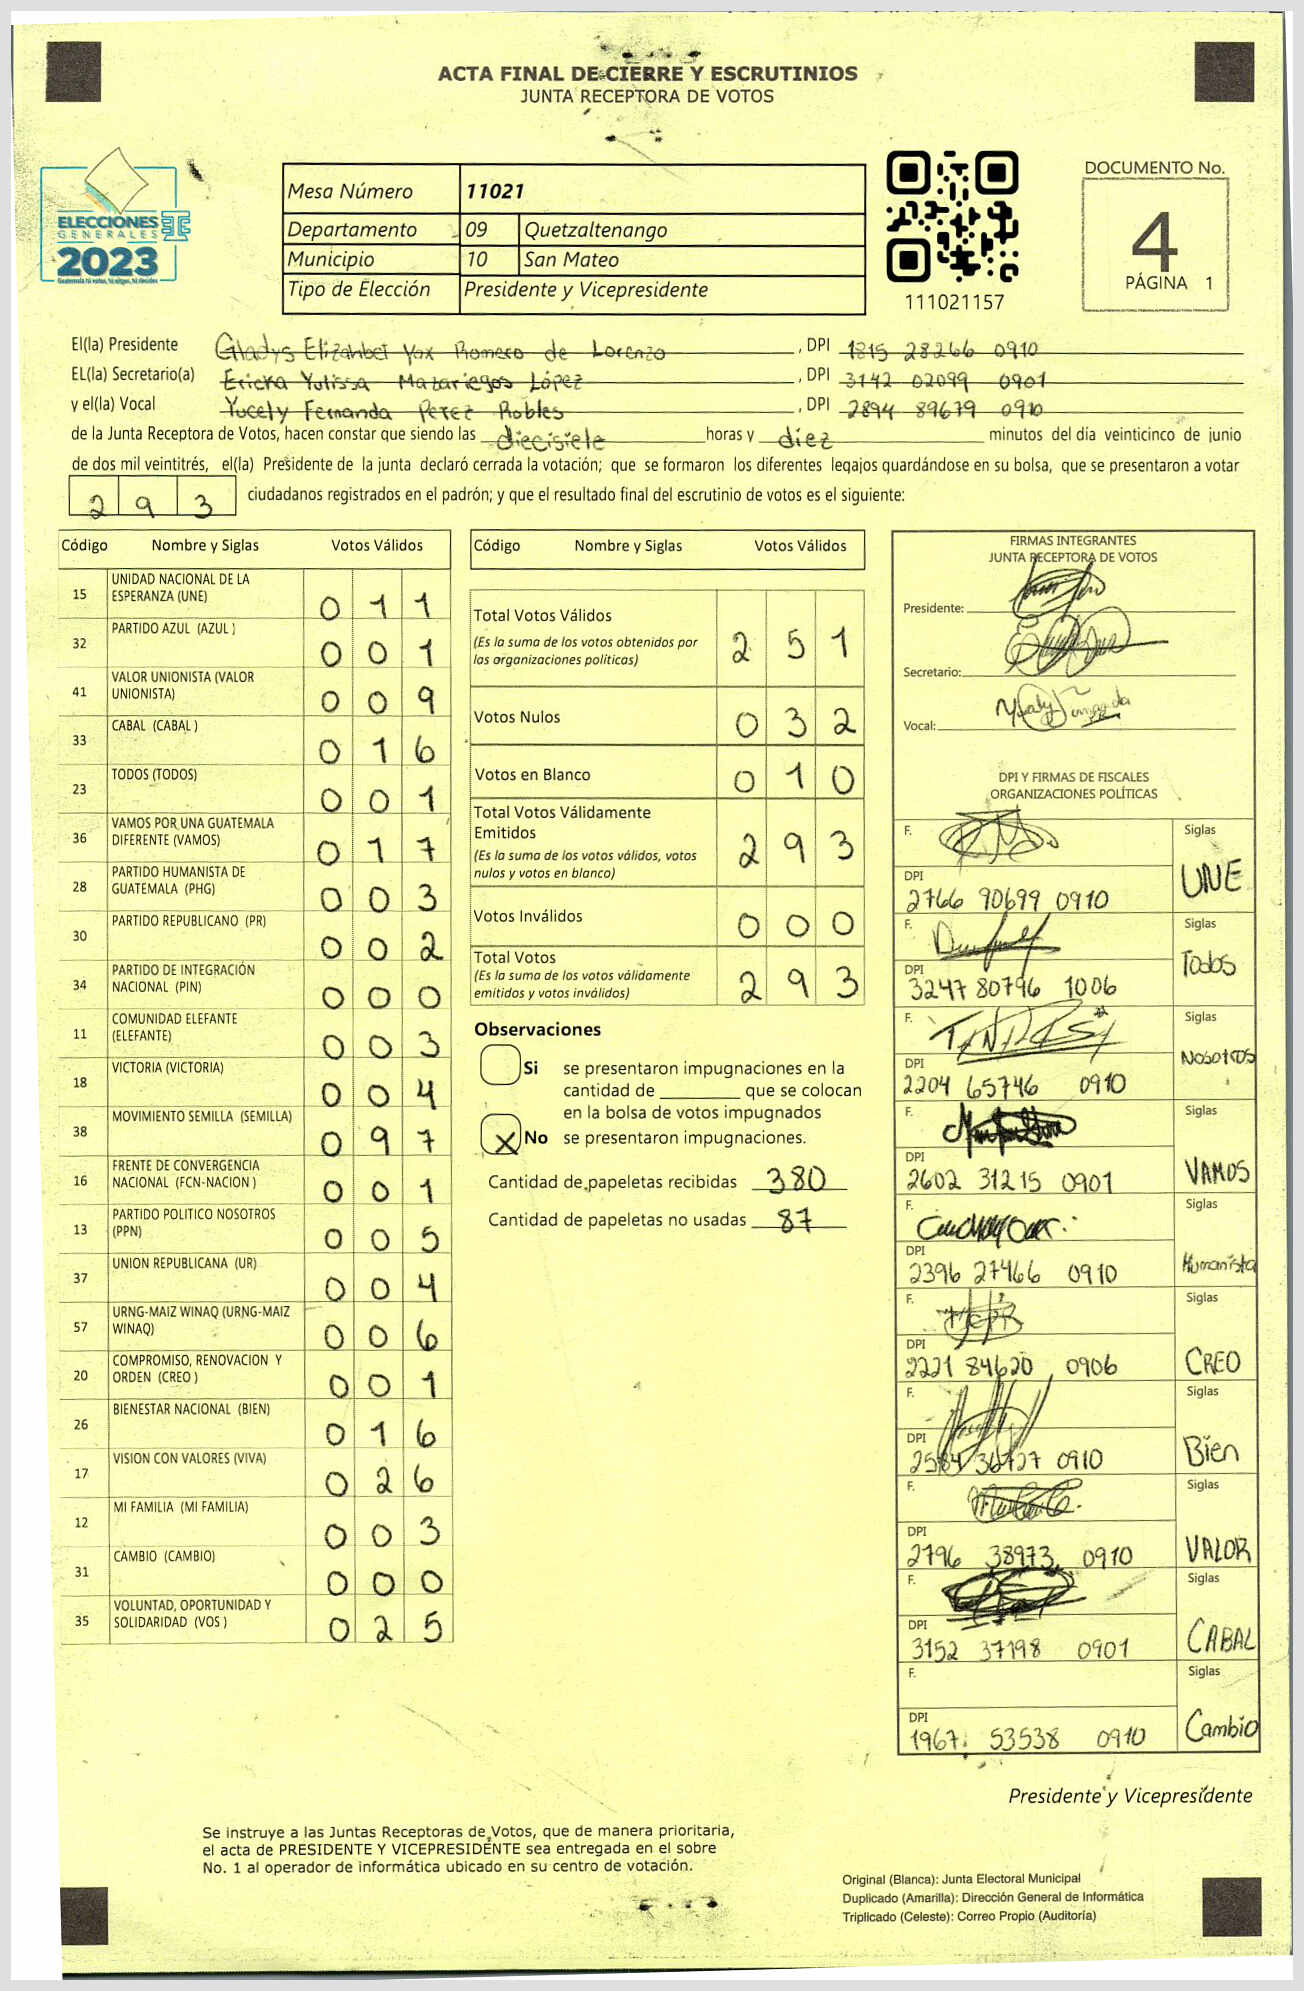 ACTA FINAL DE CIERRE Y ESCRUTINIOS
JUNTA RECEPTORA DE VOTOS
ELECCIONES
GENERALES
2023
Mesa Número 11021
Departamento 09 Quetzaltenango
Municipio 10 San Mateo
Tipo de Elección Presidente y Vicepresidente
111021157
DOCUMENTO No.
4
PÁGINA 1
El(la) Presidente Gladys Elizahbet Yox Romero de Lorenzo, DPI 1815 28266 0910
EL(la) Secretario(a) Ericka Yulissa Mazariegos López, DPI 3142 02099 0901
y el(la) Vocal Yucely Fernanda Perez Robles, DPI 2894 89679 0910
de la Junta Receptora de Votos, hacen constar que siendo las diecisiete horas y diez minutos del día veinticinco de junio
de dos mil veintitrés, el(la) Presidente de la junta declaró cerrada la votación; que se formaron los diferentes legajos guardándose en su bolsa, que se presentaron a votar
293 ciudadanos registrados en el padrón; y que el resultado final del escrutinio de votos es el siguiente:
Código Nombre y Siglas Votos Válidos
15 UNIDAD NACIONAL DE LA ESPERANZA (UNE) 011
32 PARTIDO AZUL (AZUL ) 001
41 VALOR UNIONISTA (VALOR UNIONISTA) 009
33 CABAL (CABAL ) 016
23 TODOS (TODOS) 001
36 VAMOS POR UNA GUATEMALA DIFERENTE (VAMOS) 017
28 PARTIDO HUMANISTA DE GUATEMALA (PHG) 003
30 PARTIDO REPUBLICANO (PR) 002
34 PARTIDO DE INTEGRACIÓN NACIONAL (PIN) 000
11 COMUNIDAD ELEFANTE (ELEFANTE) 003
18 VICTORIA (VICTORIA) 004
38 MOVIMIENTO SEMILLA (SEMILLA) 097
16 FRENTE DE CONVERGENCIA NACIONAL (FCN-NACION ) 001
13 PARTIDO POLITICO NOSOTROS (PPN) 005
37 UNION REPUBLICANA (UR) 004
57 URNG-MAIZ WINAQ (URNG-MAIZ WINAQ) 006
20 COMPROMISO, RENOVACION Y ORDEN (CREO ) 001
26 BIENESTAR NACIONAL (BIEN) 016
17 VISION CON VALORES (VIVA) 026
12 MI FAMILIA (MI FAMILIA) 003
31 CAMBIO (CAMBIO) 000
35 VOLUNTAD, OPORTUNIDAD Y SOLIDARIDAD (VOS ) 025
Código Nombre y Siglas Votos Válidos
Total Votos Válidos 251
(Es la suma de los votos obtenidos por
las organizaciones políticas)
Votos Nulos 032
Votos en Blanco 010
Total Votos Válidamente
Emitidos 293
(Es la suma de los votos válidos, votos
nulos y votos en blanco)
Votos Inválidos 000
Total Votos 293
(Es la suma de los votos válidamente
emitidos y votos inválidos)
Observaciones
Si se presentaron impugnaciones en la
cantidad de ________ que se colocan
en la bolsa de votos impugnados
X No se presentaron impugnaciones.
Cantidad de papeletas recibidas 380
Cantidad de papeletas no usadas 87
FIRMAS INTEGRANTES
JUNTA RECEPTORA DE VOTOS
Presidente:
Secretario:
Vocal:
DPI Y FIRMAS DE FISCALES
ORGANIZACIONES POLÍTICAS
F. Siglas
DPI 2766 90699 0910 UNE
F. Siglas
DPI 3247 80796 1006 Todos
F. Siglas
DPI 2204 65746 0910 NOSOTROS
F. Siglas
DPI 2602 31215 0901 VAMOS
F. Siglas
DPI 2396 27466 0910 Humanista
F. Siglas
DPI 2221 84620 0906 CREO
F. Siglas
DPI 0910 Bien
F. Siglas
DPI 2796 38973 0910 VALOR
F. Siglas
DPI 3152 37198 0901 CABAL
F. Siglas
DPI 1967 53538 0910 Cambio
Presidente y Vicepresidente
Se instruye a las Juntas Receptoras de Votos, que de manera prioritaria,
el acta de PRESIDENTE Y VICEPRESIDENTE sea entregada en el sobre
No. 1 al operador de informática ubicado en su centro de votación.
Original (Blanca): Junta Electoral Municipal
Duplicado (Amarilla): Dirección General de Informática
Triplicado (Celeste): Correo Propio (Auditoría)